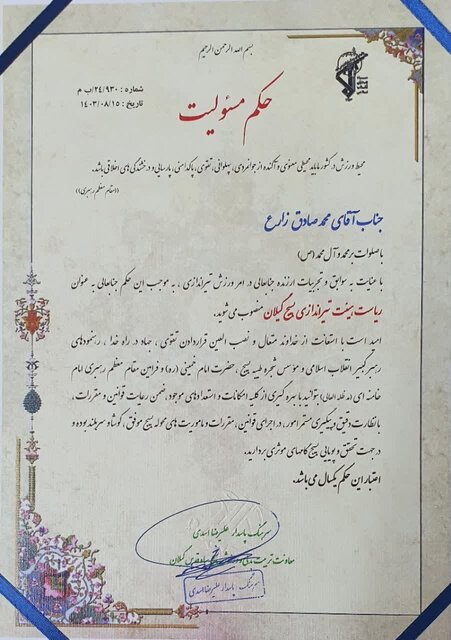 بسم الله الرحمن الرحیم
شماره : ۲۴/۹۳۰/ب م
تاریخ : ۱۴۰۳/۰۸/۱۵
حکم مسئولیت
محیط ورزش در کشور ما باید محیطی معنوی و آکنده از جوانمردی، پهلوانی، تقوی، پاکدامنی، پارسایی و درخشندگی های اخلاقی باشد.
((مقام معظم رهبری))
جناب آقای محمد صادق زارع
با صلوات بر محمد و آل محمد (ص)
با عنایت به سوابق و تجربیات ارزنده جنابعالی در امر ورزش تیراندازی ، به موجب این حکم جنابعالی به عنوان
ریاست هیئت تیراندازی بسیج گیلان منصوب می شوید.
امید است با استعانت از خداوند متعال و نصب العین قراردادن تقوی ، جهاد در راه خدا ، رهنمودهای
رهبر کبیر انقلاب اسلامی و موسس شجره طیبه بسیج ، حضرت امام خمینی (ره) و فرامین مقام معظم رهبری امام
خامنه ای (مد ظله العالی) بتوانید با بهره گیری از کلیه امکانات و استعدادهای موجود، ضمن رعایت قوانین و مقررات ،
با نظارت دقیق و پیگیری مستمر امور، در اجرای قوانین، مقررات و ماموریت های محوله بسیج موفق ، کوشا و سربلند بوده و
در جهت تحقق و پویایی بسیج گامهای موثری بردارید.
اعتبار این حکم یکسال می باشد.
سرهنگ پاسدار علیرضا اسدی
معاونت تربیت بدنی و گیلان
سرهنگ پاسدار علیرضا اسدی